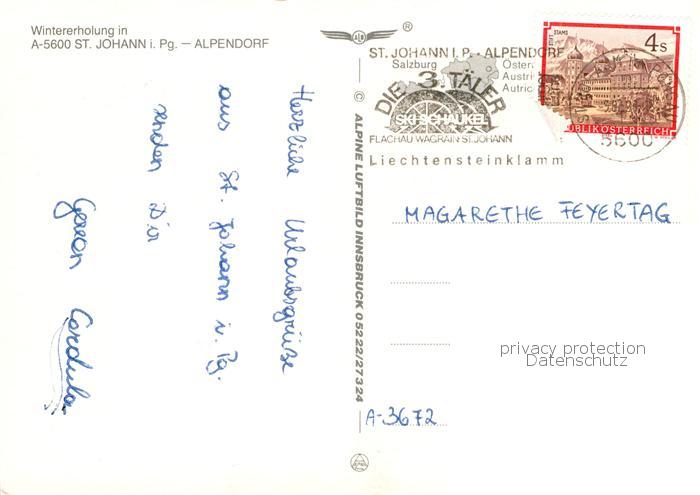 Wintererholung in
A-5600 ST. JOHANN i. Pg. — ALPENDORF
Herzliche Urlaubsgrüße
aus St. Johann i. Pg.
senden Dir
Cordula
®
© ALPINE LUFTBILD INNSBRUCK 05222/27324
ST. JOHANN I. P. - ALPENDORF
Salzburg
DIE 3. TÄLER
SKI-SCHAUKEL
FLACHAU WAGRAIN ST. JOHANN
Liechtensteinklamm
STIFT STAMS
4 S
REPUBLIK ÖSTERREICH
5600
MAGARETHE FEYERTAG
privacy protection
Datenschutz
A-3672